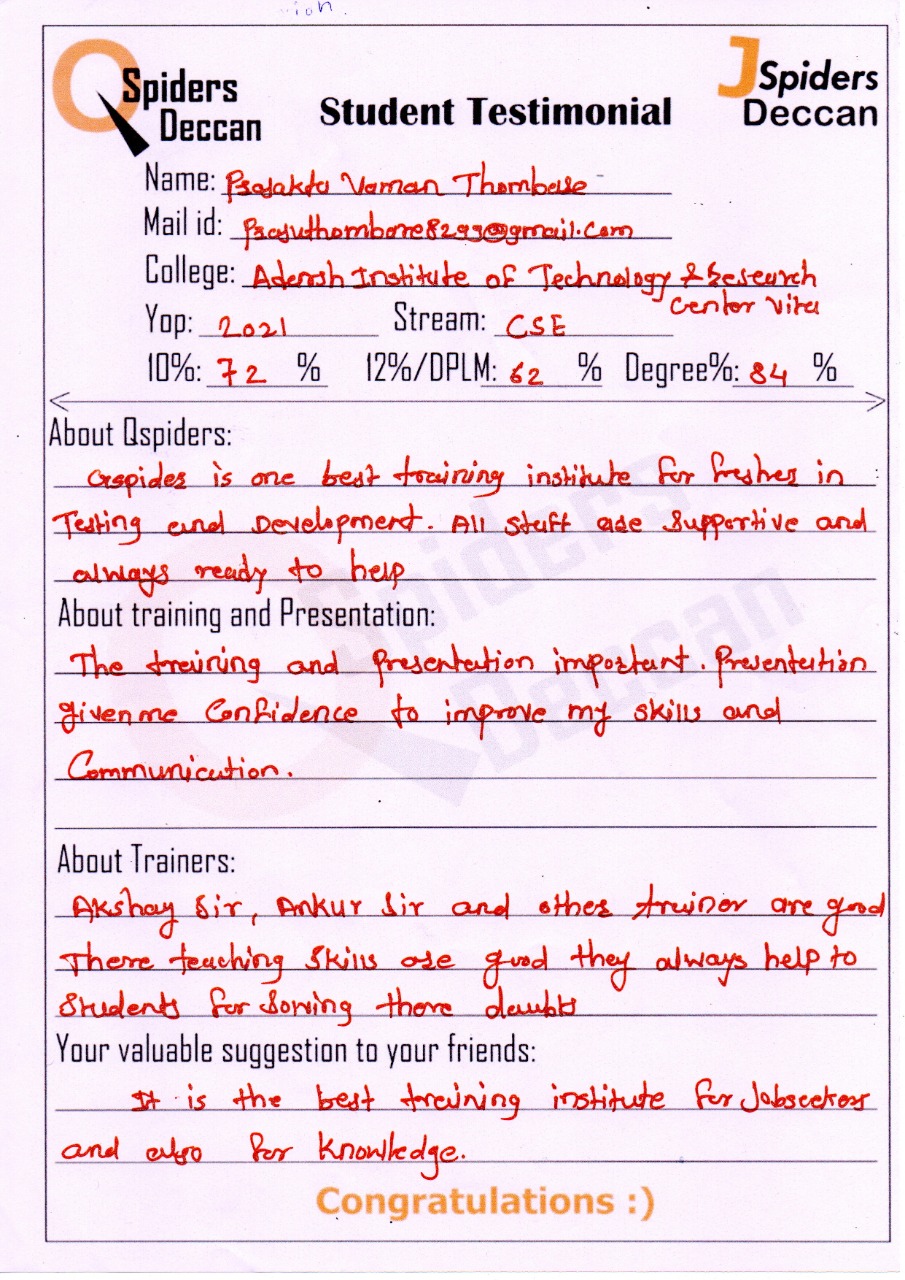 ion.
QSpiders
Deccan
Student Testimonial
JSpiders
Deccan
Name: Prajakta Vaman Thombare
Mail id: prajuthombare8299@gmail.com
College: Adarsh Institute of Technology & Research
Center Vita
Yop: 2021 Stream: CSE
10%: 72 % 12%/DPLM: 62 % Degree%: 84 %
About Qspiders:
Qspider is one best training institute for freshes in
Testing and Development. All staff are supportive and
always ready to help
About training and Presentation:
The treining and Presentation important. Presentation
given me Confidence to improve my skills and
Communication.
About Trainers:
Akshay Sir, Ankur Sir and other trainer are good
There teaching skills are good they always help to
Students for Solving there doubts
Your valuable suggestion to your friends:
It is the best treining institute for Jobseekers
and also for knowledge.
Congratulations :)